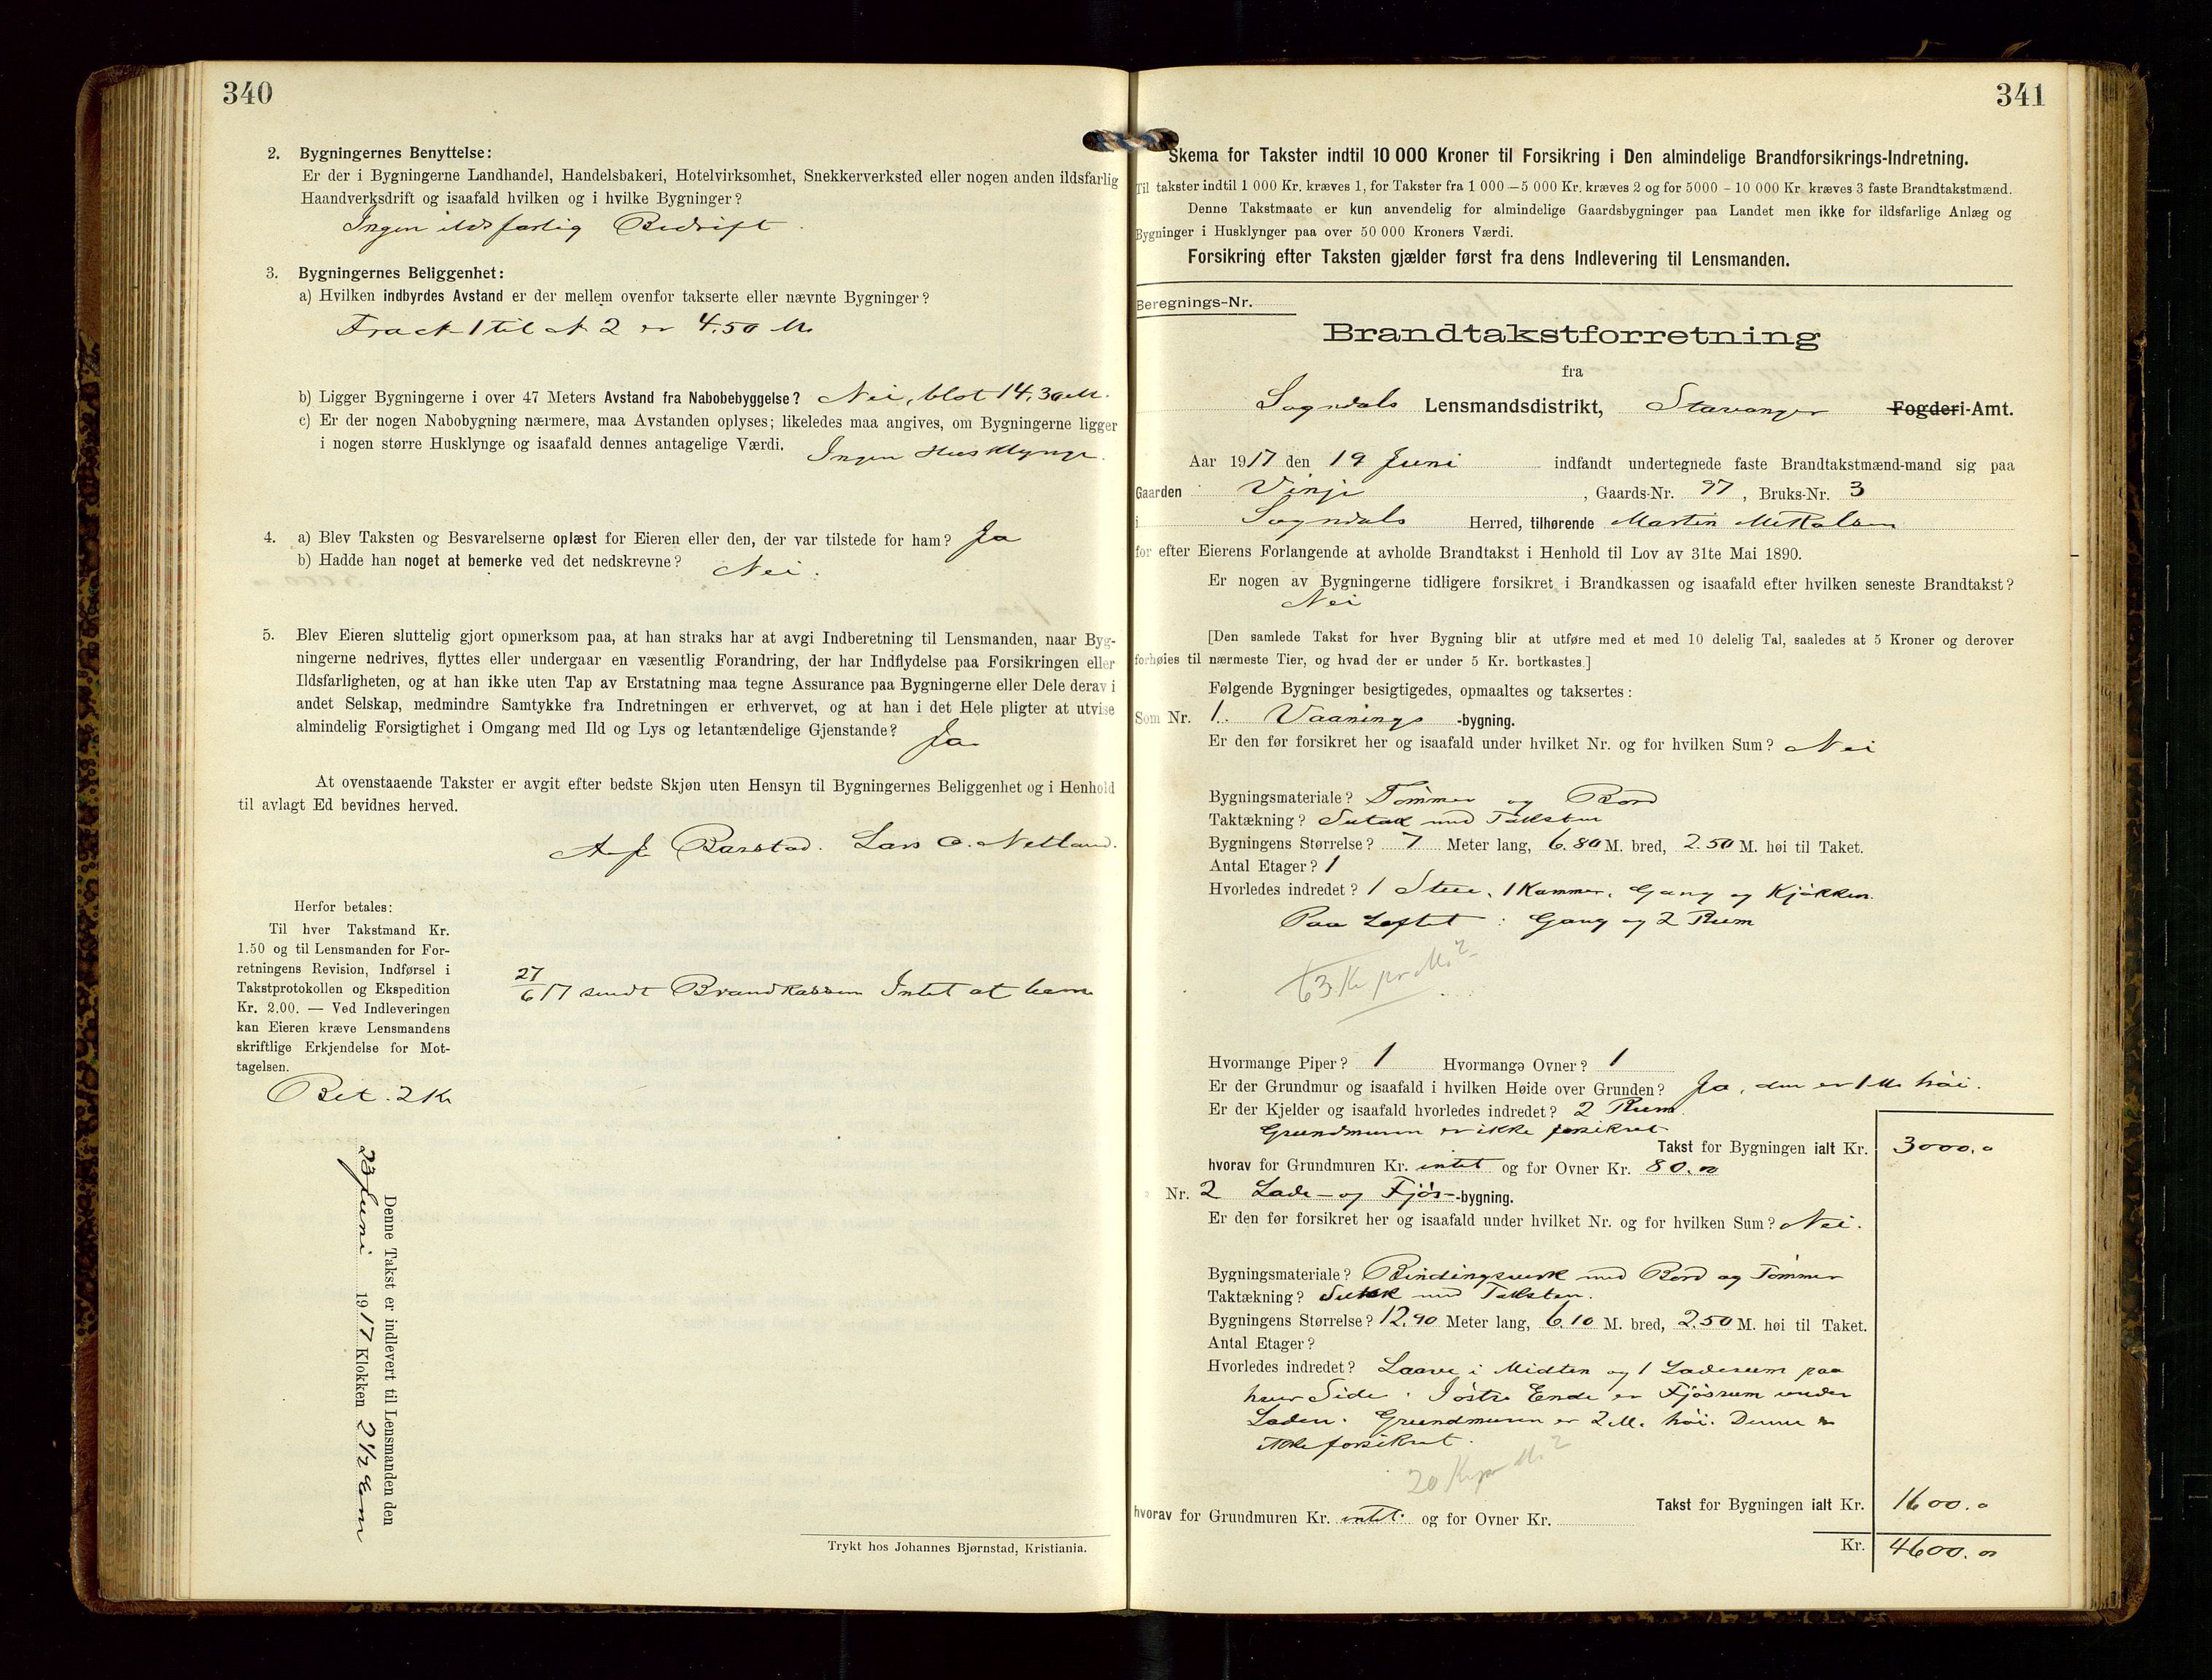 340
2. Bygningernes Benyttelse:
Er der i Bygningerne Landhandel, Handelsbakeri, Hotelvirksomhet, Snekkerverksted eller nogen anden ildsfarlig
Haandverksdrift og isaafald hvilken og i hvilke Bygninger?
Ingen ildsfarlig Bedrift.
3. Bygningernes Beliggenhet:
a) Hvilken indbyrdes Avstand er der mellem ovenfor takserte eller nævnte Bygninger?
Fra № 1 til № 2 er 4.50 M.
b) Ligger Bygningerne i over 47 Meters Avstand fra Nabobebyggelse? Nei, blot 14.30 M.
c) Er der nogen Nabobygning nærmere, maa Avstanden oplyses; likeledes maa angives, om Bygningerne ligger
i nogen større Husklynge og isaafald dennes antagelige Værdi. Ingen Husklynge.
4. a) Blev Taksten og Besvarelserne oplæst for Eieren eller den, der var tilstede for ham? Ja
b) Hadde han noget at bemerke ved det nedskrevne? Nei.
5. Blev Eieren sluttelig gjort opmerksom paa, at han straks har at avgi Indberetning til Lensmanden, naar Byg-
ningerne nedrives, flyttes eller undergaar en væsentlig Forandring, der har Indflydelse paa Forsikringen eller
Ildsfarligheten, og at han ikke uten Tap av Erstatning maa tegne Assurance paa Bygningerne eller Dele derav i
andet Selskap, medmindre Samtykke fra Indretningen er erhvervet, og at han i det Hele pligter at utvise
almindelig Forsigtighet i Omgang med Ild og Lys og letantændelige Gjenstande? Ja
At ovenstaaende Takster er avgit efter bedste Skjøn uten Hensyn til Bygningernes Beliggenhet og i Henhold
til avlagt Ed bevidnes herved.
Barstad. Lars O. Netland.
Herfor betales:
Til hver Takstmand Kr.
1.50 og til Lensmanden for For-
retningens Revision, Indførsel i
Takstprotokollen og Ekspedition
Kr. 2.00. — Ved Indleveringen
kan Eieren kræve Lensmandens
skriftlige Erkjendelse for Mot-
tagelsen.
27/6 17 sendt Brandkassen Intet at bem
Bet. 2 Kr
Denne Takst er indlevert til Lensmanden den
23 Juni 1917 Klokken 2 1/2 Em
Trykt hos Johannes Bjørnstad, Kristiania.
341
Skema for Takster indtil 10 000 Kroner til Forsikring i Den almindelige Brandforsikrings-Indretning.
Til takster indtil 1 000 Kr. kræves 1, for Takster fra 1 000—5 000 Kr. kræves 2 og for 5000 - 10 000 Kr. kræves 3 faste Brandtakstmænd.
Denne Takstmaate er kun anvendelig for almindelige Gaardsbygninger paa Landet men ikke for ildsfarlige Anlæg og
Bygninger i Husklynger paa over 50 000 Kroners Værdi.
Forsikring efter Taksten gjælder først fra dens Indlevering til Lensmanden.
Beregnings-Nr.
Brandtakstforretning
fra
Sogndals Lensmandsdistrikt, Stavanger Fogderi-Amt.
Aar 1917 den 19 Juni indfandt undertegnede faste Brandtakstmænd-mand sig paa
Gaarden Vinje, Gaards-Nr. 97, Bruks-Nr. 3
i Sogndals Herred, tilhørende Martin Mikalsen
for efter Eierens Forlangende at avholde Brandtakst i Henhold til Lov av 31te Mai 1890.
Er nogen av Bygningerne tidligere forsikret i Brandkassen og isaafald efter hvilken seneste Brandtakst?
Nei
[Den samlede Takst for hver Bygning blir at utføre med et med 10 delelig Tal, saaledes at 5 Kroner og derover
forhøies til nærmeste Tier, og hvad der er under 5 Kr. bortkastes.]
Følgende Bygninger besigtigedes, opmaaltes og taksertes:
Som Nr. 1. Vaanings -bygning.
Er den før forsikret her og isaafald under hvilket Nr. og for hvilken Sum? Nei
Bygningsmateriale? Tømmer og Bord
Taktækning? Sutak med Taksten
Bygningens Størrelse? 7 Meter lang, 6.80 M. bred, 2.50 M. høi til Taket.
Antal Etager? 1
Hvorledes indredet? 1 Stue, 1 Kammer, Gang og Kjøkken.
Paa Loftet: Gang og 2 Rum
63 Kr pr M²
Hvormange Piper? 1 Hvormange Ovner? 1
Er der Grundmur og isaafald i hvilken Høide over Grunden? Ja, den er 1 M. høi.
Er der Kjelder og isaafald hvorledes indredet? 2 Rum.
Grundmuren er ikke forsikret
Takst for Bygningen ialt Kr. 3000.0
hvorav for Grundmuren Kr. intet og for Ovner Kr. 80.00
Nr. 2 Lade- og Fjøs- -bygning.
Er den før forsikret her og isaafald under hvilket Nr. og for hvilken Sum? Nei.
Bygningsmateriale? Bindingsverk med Bord og Tømmer
Taktækning? Sutak med Taksten.
Bygningens Størrelse? 12.90 Meter lang, 6.10 M. bred, 2.50 M. høi til Taket.
Antal Etager?
Hvorledes indredet? Laave i Midten og 1 Laderum paa
hver Side. I østre Ende er Fjøsrum under
Laden. Grundmuren er 2 M. høi. Denne er
ikke forsikret.
20 Kr pr M²
Takst for Bygningen ialt Kr. 1600.0
hvorav for Grundmuren Kr. intet. og for Ovner Kr.
Kr. 4600.00